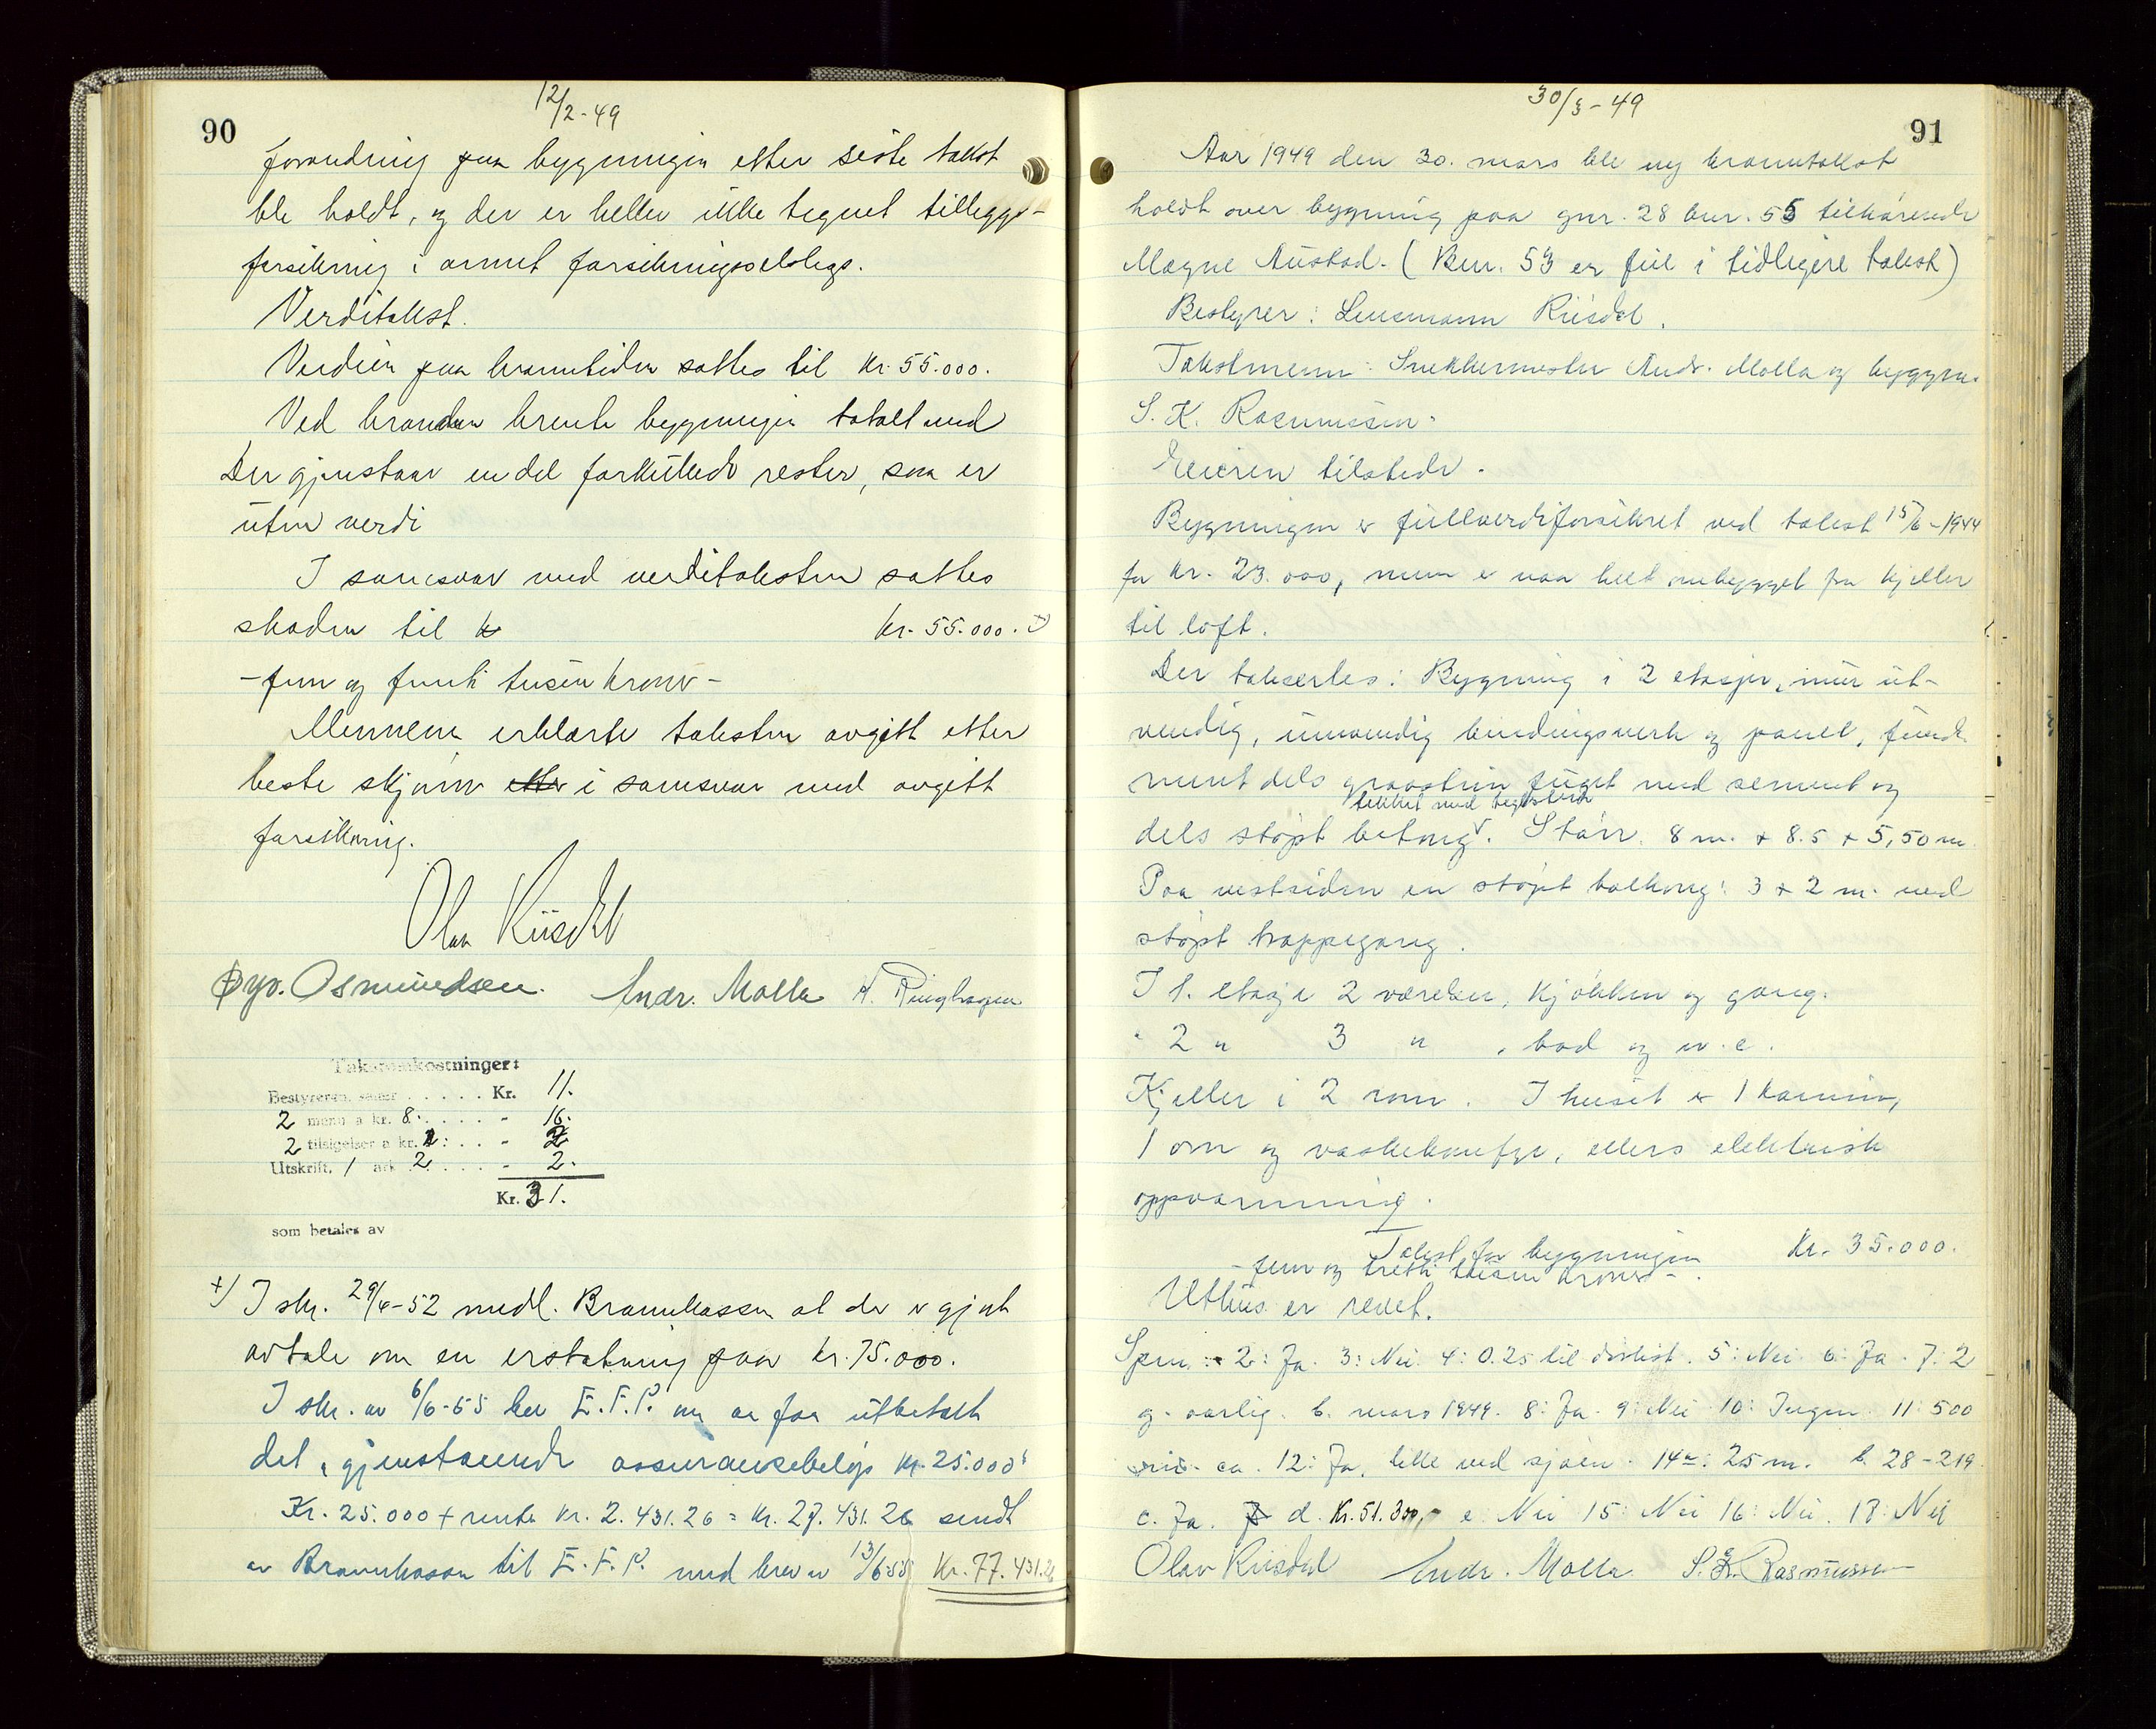 90
12/2-49
forandring paa bygningen etter siste takst
ble holdt, og der er heller ikke tegnet tilleggs-
forsikring i annet forsikringsselskap.
Verditakst.
Verdien paa branntiden sattes til kr. 55.000.
Ved branden brente bygningen totalt ned
Der gjenstaar en del forkullede rester, som er
uten verdi
I samsvar med verditaksten sattes
skaden til k kr. 55.000. +)
-fem og femti tusen kroner-
Mennene erklærte taksten avgitt etter
beste skjønn etter i samsvar med avgitt
forsikring.
Olav Riisdal
Øyv. Osmundsen. Andr. Molla H. Ringhagen
Takstomkostninger:
Bestyreren, samr ..... Kr. 11.
2 menn a kr. 8. .... - 16.
2 tilsigelser a kr. 1: ... - 2
Utskrift, 1 ark 2 .... - 2.
Kr. 31.
som betales av
+) I skr. 29/4-52 medl. Brannkassen at der er gjort
avtale om en erstatning paa kr. 75.000.
I skr. av 6/6-55 ber E.F.P. om aa faa utbetalt
det gjenstaaende assuransebeløp kr. 25.000
Kr. 25.000 + rente kr. 2.431.26 = kr. 27.431.26 sendt
av Brannkassen til E.F.P. med brev av 13/6-55 Kr. 77.431.26
30/3-49
91
Aar 1949 den 30. mars ble ny branntakst
holdt over bygning paa gnr. 28 bnr. 55 tilhørende
Magne Austad. (Bnr. 53 er feil i tidligere takst)
Bestyrer: Lensmann Riisdal.
Takstmenn: Snekkermester Andr. Molla og byggm.
S. K. Rasmussen.
Eieren tilstede.
Bygningen er fullverdiforsikret ved takst 15/6-1944
for kr. 23.000, men er naa helt ombygget fra kjeller
til loft.
Der takseres: Bygning i 2 etasjer, mur ut-
vendig, innvendig bindingsverk og panel, funda
ment dels graastein fuget med sement og
tekket med teglstein
dels støpt betong. Større. 8 m. x 8.5 x 5,50 m
Paa vestsiden en støpt balkong: 3 x 2 m. med
støpt trappegang.
I 1. etasje 2 værelser, kjøkken og gang.
" 2 " 3 " , bad og w.c.
Kjeller i 2 rom. I huset er 1 kamin,
1 ovn og vaskekomfyr, ellers elektrisk
oppvarming.
Takst for bygningen Kr. 35.000.
-fem og tretti tusen kroner-.
Uthus er revet.
Spm: 2: Ja. 3: Nei 4: 0.25 til dørligst. 5: Nei 6: Ja. 7: 2
g. aarlig. b. mars 1949. 8: Ja. 9: Nei 10: Ingen 11: 500
ca. 12: Ja, like ved sjøen. 14a: 25 m. b. 28-219
c. Ja. d. Kr. 51.300,- e Nei 15: Nei 16: Nei. 18: Nei
Olav Riisdal Andr. Molla S. K. Rasmussen